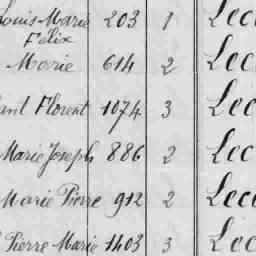 Louis Marie 203 1 Lec
Felix
Marie 614 2 Lec
Florent 1074 3 Lec
Marie Joseph 886 2 Lec
Marie Pierre 912 2 Lec
Pierre Marie 1403 3 Lec